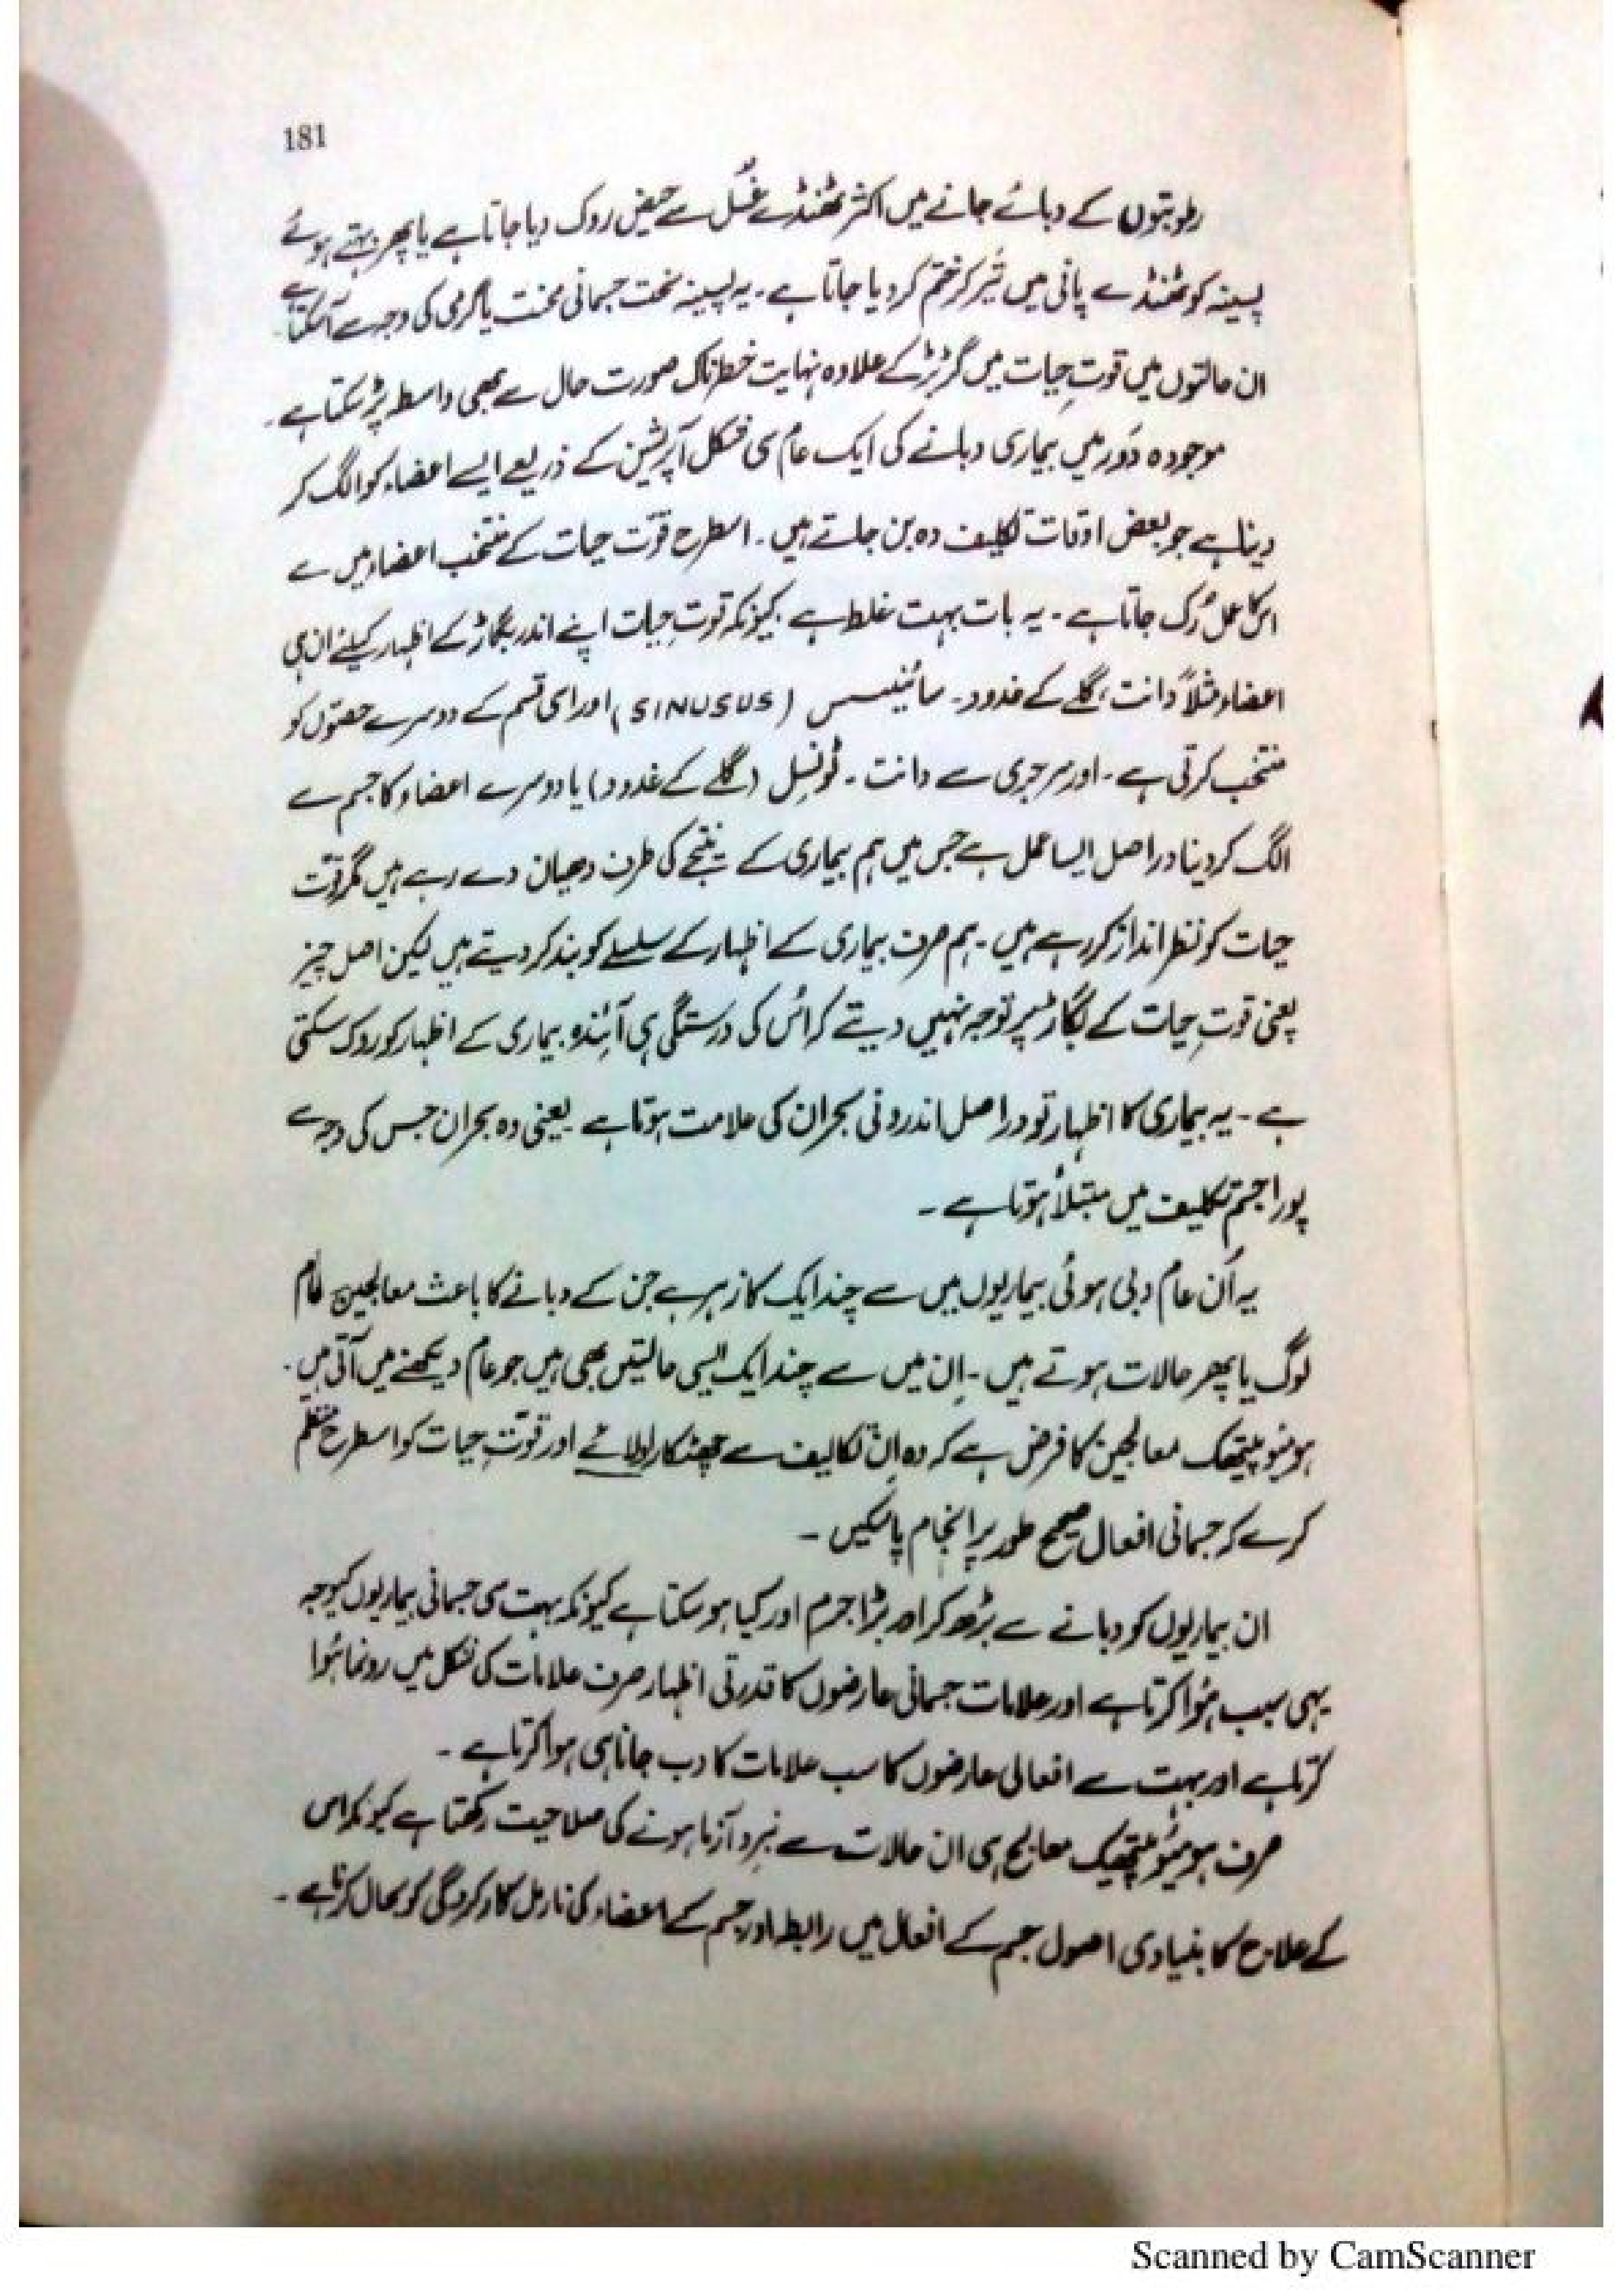 181
رطوبتوں کے دبائے جانے میں اکثر ٹھنڈے غسل سے حیض روک دیا جاتا ہے یا پھر بہتے ہوئے
پسینہ کو ٹھنڈے پانی میں تَیر کر ختم کر دیا جاتا ہے۔ یہ پسینہ سخت جسمانی محنت یا گرمی کی وجہ سے آسکتا ہے
ان حالتوں میں قوتِ حیات میں گڑبڑ کے علاوہ نہایت خطرناک صورت حال سے بھی واسطہ پڑ سکتا ہے۔
موجودہ دَور میں بیماری دبانے کی ایک عام سی شکل آپریشن کے ذریعے ایسے اعضاء کو الگ کر
دینا ہے جو بعض اوقات تکلیف دہ بن جاتے ہیں۔ اسطرح قوّت حیات کے منتخب اعضاء میں سے
اس کا عمل رُک جاتا ہے۔ یہ بات بہت غلط ہے کیونکہ قوتِ حیات اپنے اندر بگاڑ کے اظہار کیلئے ان ہی
اعضاء مثلاً دانت، گلے کے غدود۔ سائینسس (SINUSUS) اور اسی قسم کے دوسرے حصّوں کو
منتخب کرتی ہے۔ اور سرجری سے دانت۔ ٹونسل (گلے کے غدود) یا دوسرے اعضاء کا جسم سے
الگ کر دینا دراصل ایسا عمل ہے جس میں ہم بیماری کے نتیجے کی طرف دھیان دے رہے ہیں مگر قوّت
حیات کو نظر انداز کر رہے ہیں۔ ہم صرف بیماری کے اظہار کے سلسلے کو بند کر دیتے ہیں لیکن اصل چیز
یعنی قوتِ حیات کے بگاڑ پر توجہ نہیں دیتے کہ اُس کی درستگی ہی آئندہ بیماری کے اظہار کو روک سکتی
ہے۔ یہ بیماری کا اظہار تو دراصل اندرونی بحران کی علامت ہوتا ہے یعنی وہ بحران جس کی وجہ سے
پورا جسم تکلیف میں مبتلا ہوتا ہے۔
یہ اُن عام دبی ہوئی بیماریوں میں سے چند ایک کا زہر ہے جن کے دبانے کا باعث معالجین عام
لوگ یا پھر حالات ہوتے ہیں۔ اِن میں سے چند ایک ایسی حالتیں بھی ہیں جو عام دیکھنے میں آتی ہیں۔
ہومیوپیتھک معالجین کا فرض ہے کہ وہ اِن تکالیف سے چھٹکارا دلائے اور قوّتِ حیات کو اسطرح منظم
کرے کہ جسمانی افعال صحیح طور پر انجام پا سکیں۔
ان بیماریوں کو دبانے سے بڑھ کر اور بڑا جرم اور کیا ہو سکتا ہے کیونکہ بہت سی جسمانی بیماریوں کیوجہ
یہی سبب ہُوا کرتا ہے اور علامات جسمانی عارضوں کا قدرتی اظہار صرف علامات کی شکل میں رونما ہُوا
کرتا ہے اور بہت سے افعالی عارضوں کا سبب علامات کا دب جانا ہی ہوا کرتا ہے۔
صرف ہومیوپیتھک معالج ہی ان حالات سے نبرد آزما ہونے کی صلاحیت رکھتا ہے کیونکہ اس
کے علاج کا بنیادی اصول جسم کے افعال میں رابطہ اور جسم کے اعضاء کی نارمل کارکردگی کو بحال کرنا ہے۔
Scanned by CamScanner